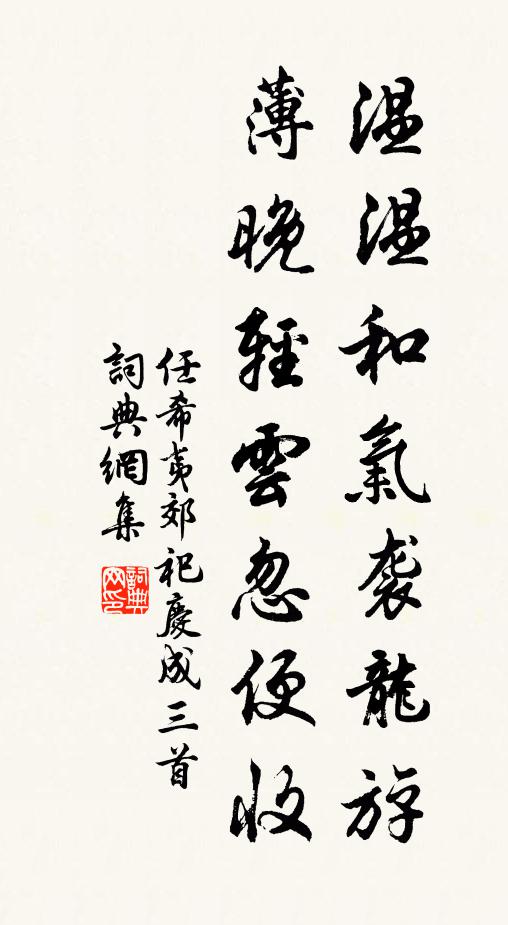 温温和氣袭龍斿
薄晚輕雲忽便收
任希夷郊祀慶成三首
詞典網集
詞典网印